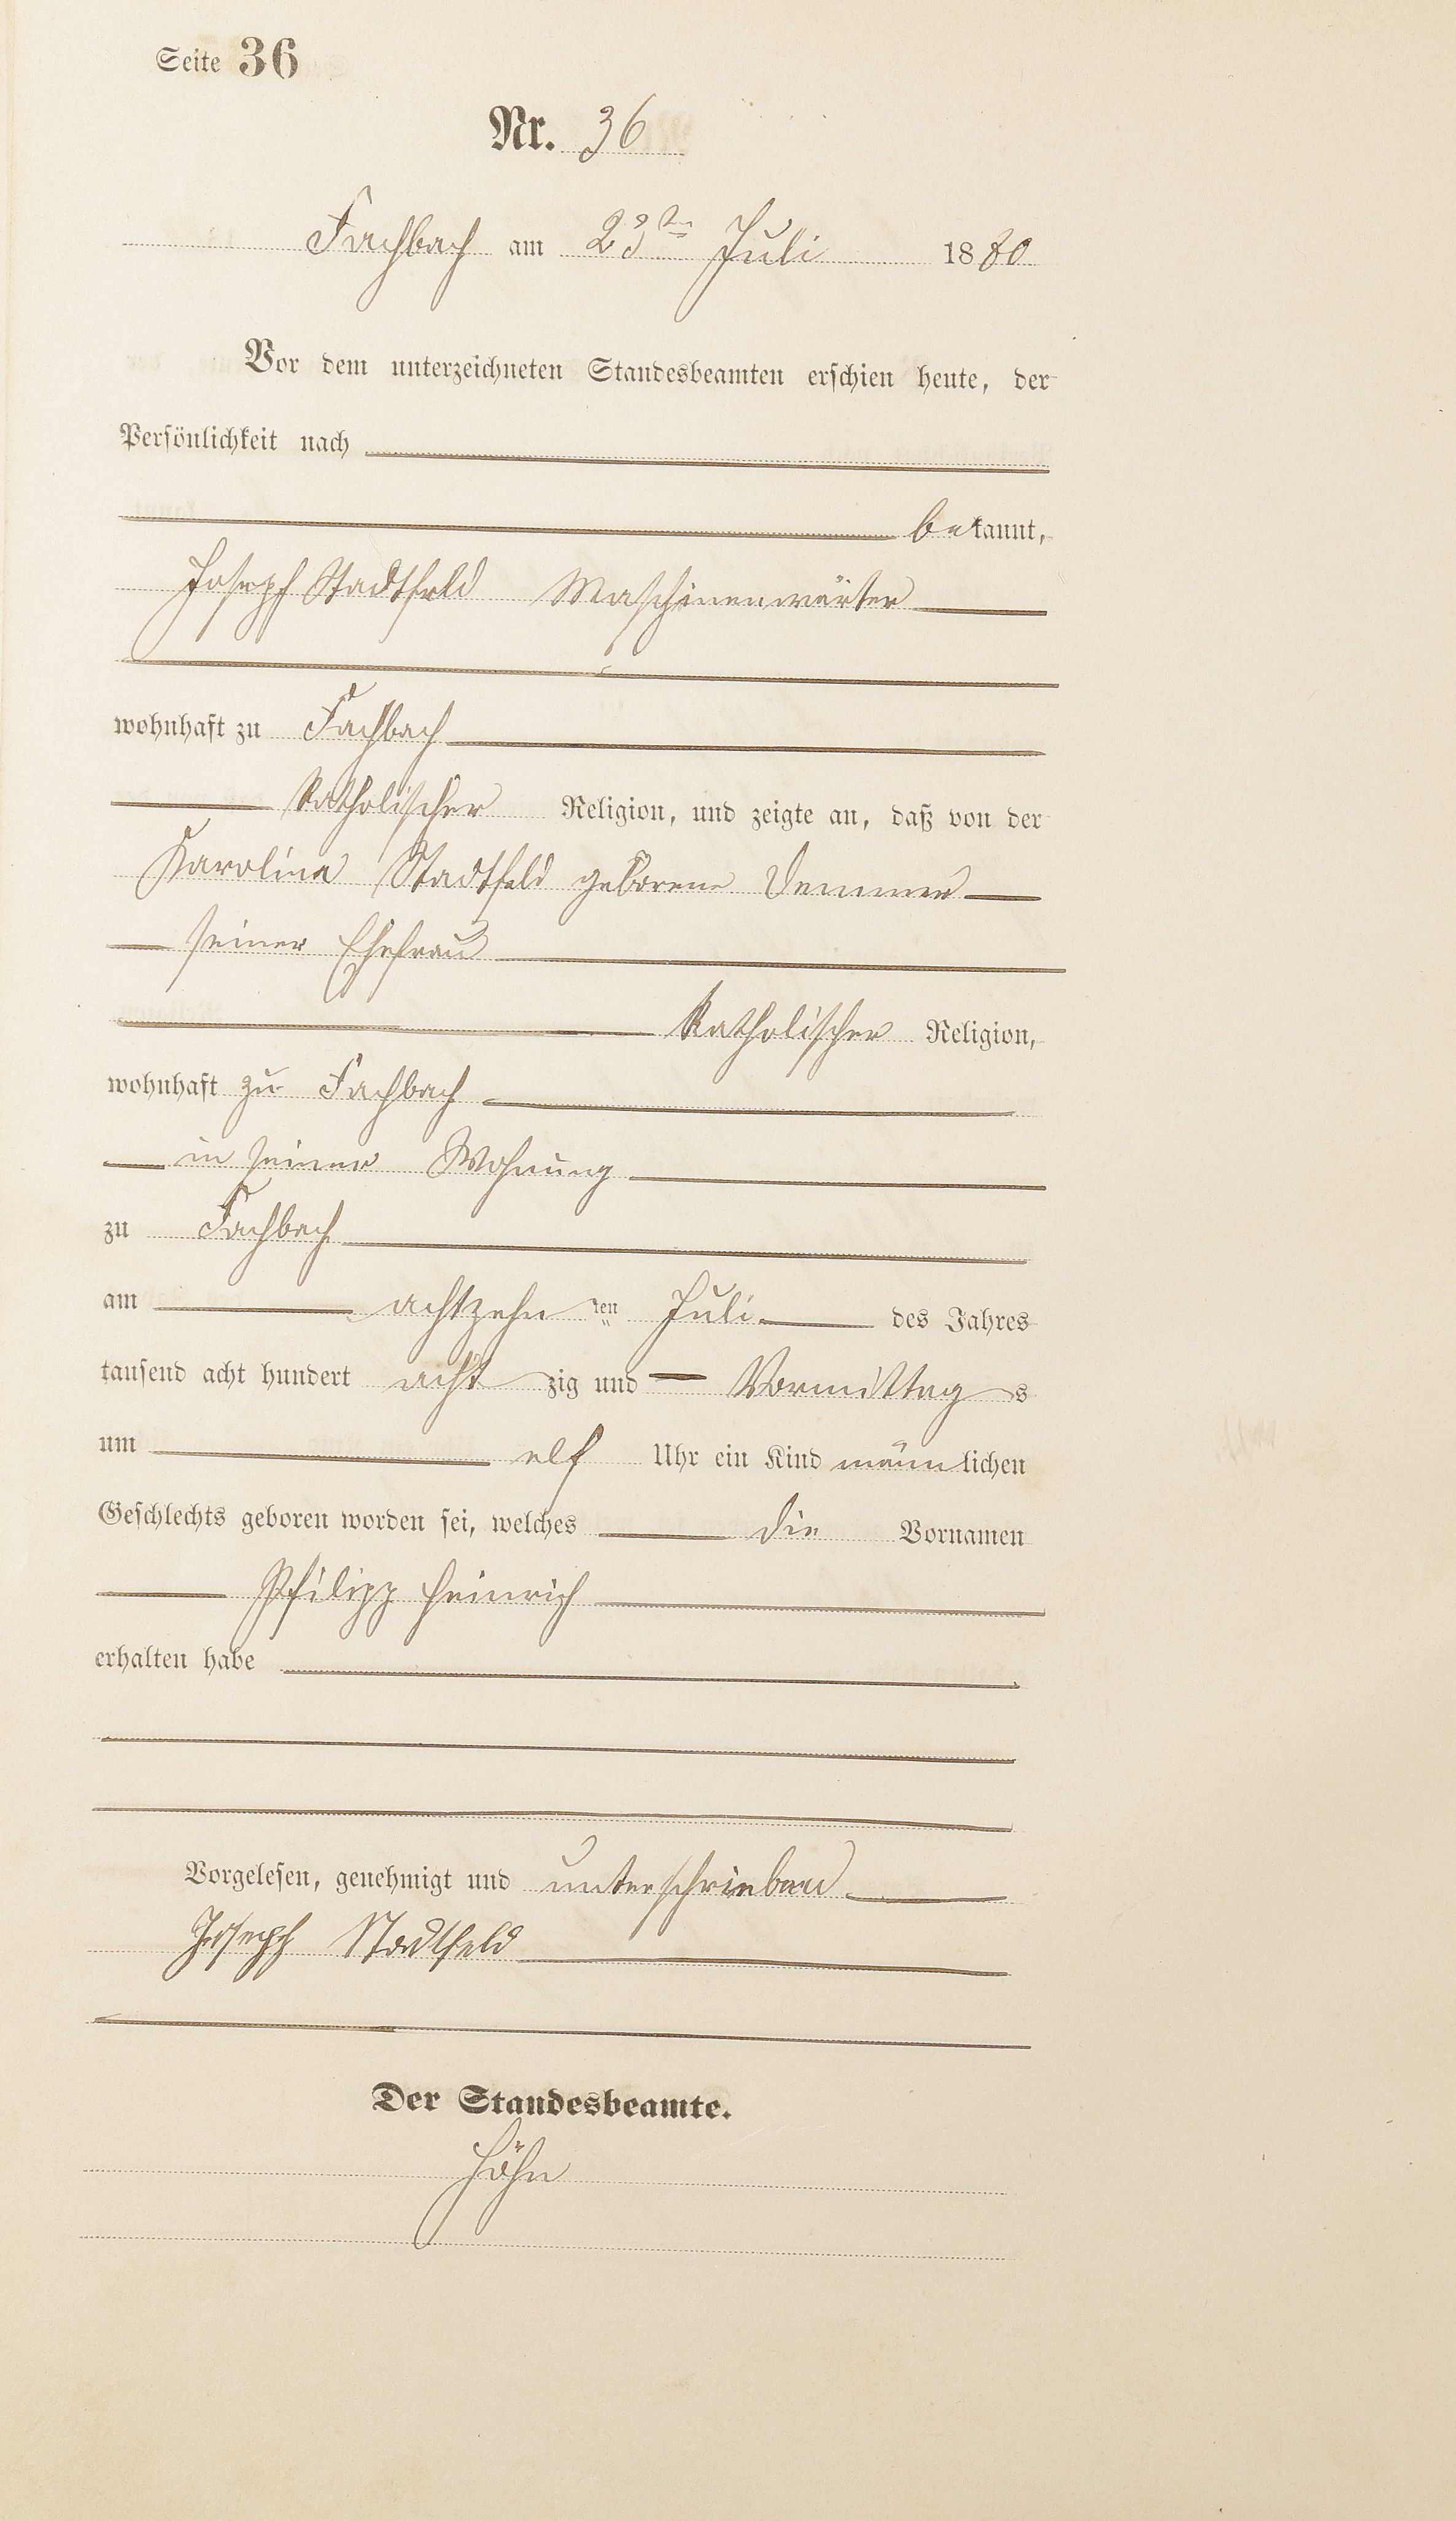 Seite 36
Nr. 36
Fachbach am 23ten Juli 1880
Vor dem unterzeichneten Standesbeamten erschien heute, der
Persönlichkeit nach
bekannt,
Joseph Stadtfeld Maschinenwärter
wohnhaft zu Fachbach
katholischer Religion, und zeigte an, daß von der
Karolina Stadtfeld geborene Demmer
seiner Ehefrau
katholischer Religion,
wohnhaft zu Fachbach
in seiner Wohnung
zu Fachbach
am achtzehnten Juli des Jahres
tausend acht hundert achtzig und Vormittags
um elf Uhr ein Kind männlichen
Geschlechts geboren worden sei, welches die Vornamen
Philipp Heinrich
erhalten habe
Vorgelesen, genehmigt und unterschrieben
Joseph Stadtfeld
Der Standesbeamte.
Höhn